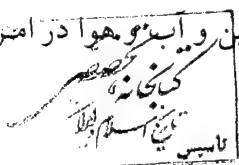 ن و آب و هوا در امر
کتابخانه
تاریخ اسلام و ایران
تاسیس